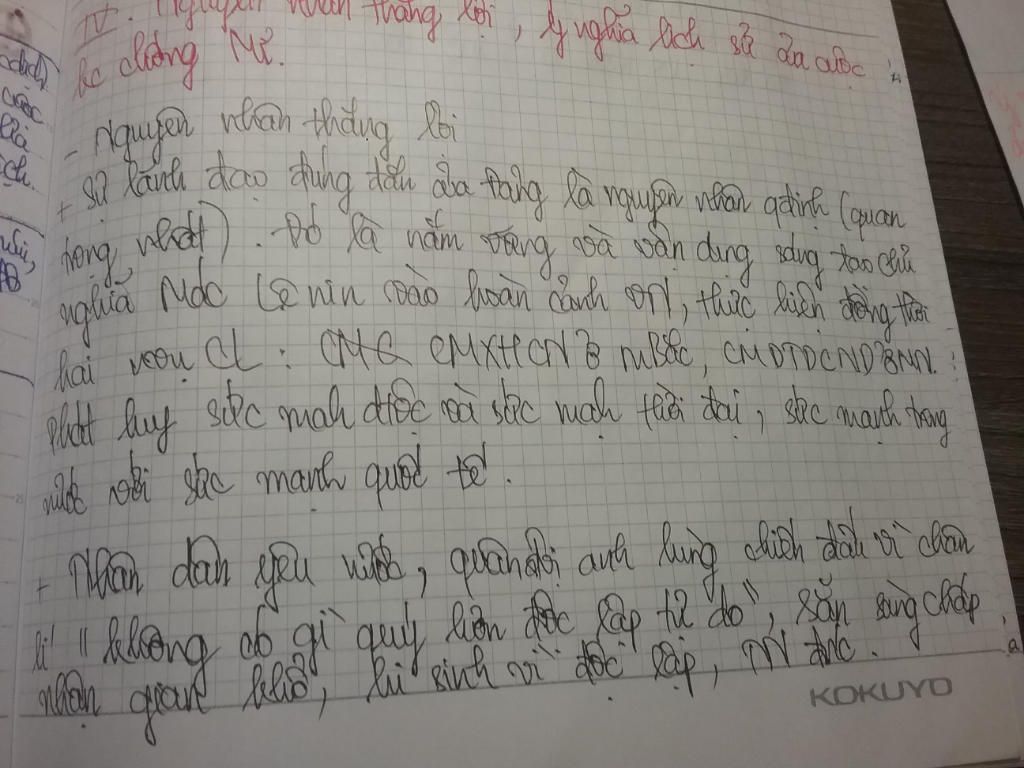 IV. Nguyên nhân thắng lợi, ý nghĩa lịch sử của cuộc
kc chống Mĩ.
- Nguyên nhân thắng lợi
+ Sự lãnh đạo đúng đắn của Đảng là nguyên nhân qđịnh (quan
trọng nhất). Đó là nắm vững và vận dụng sáng tạo chủ
nghĩa Mác Lênin vào hoàn cảnh VN, thực hiện đồng thời
hai CL: CMXHCN ở mBắc, CMDTDCND ở MN.
phát huy sức mạnh dtộc và sức mạnh thời đại, sức mạnh trong
nước với sức mạnh quốc tế.
+ Nhân dân yêu nước, quân đội anh hùng chiến đấu vì chân
lí "không có gì quý hơn độc lập tự do", sẵn sàng chấp
nhận gian khổ, hi sinh vì độc lập, TN đnc.
KOKUYO